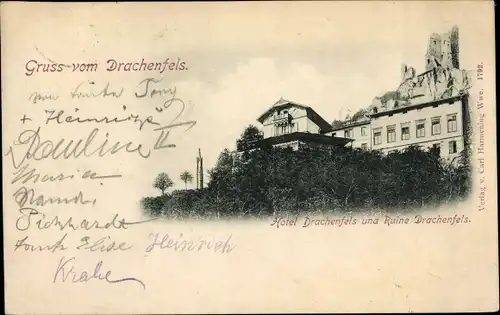 Gruss vom Drachenfels.
von tante Tony
+ Heinrich
Pauline
Maria
tante Elise Heinrich
Krahe
Hotel Drachenfels und Ruine Drachenfels.
Verlag v. Carl Harmening Wwe. 1792.